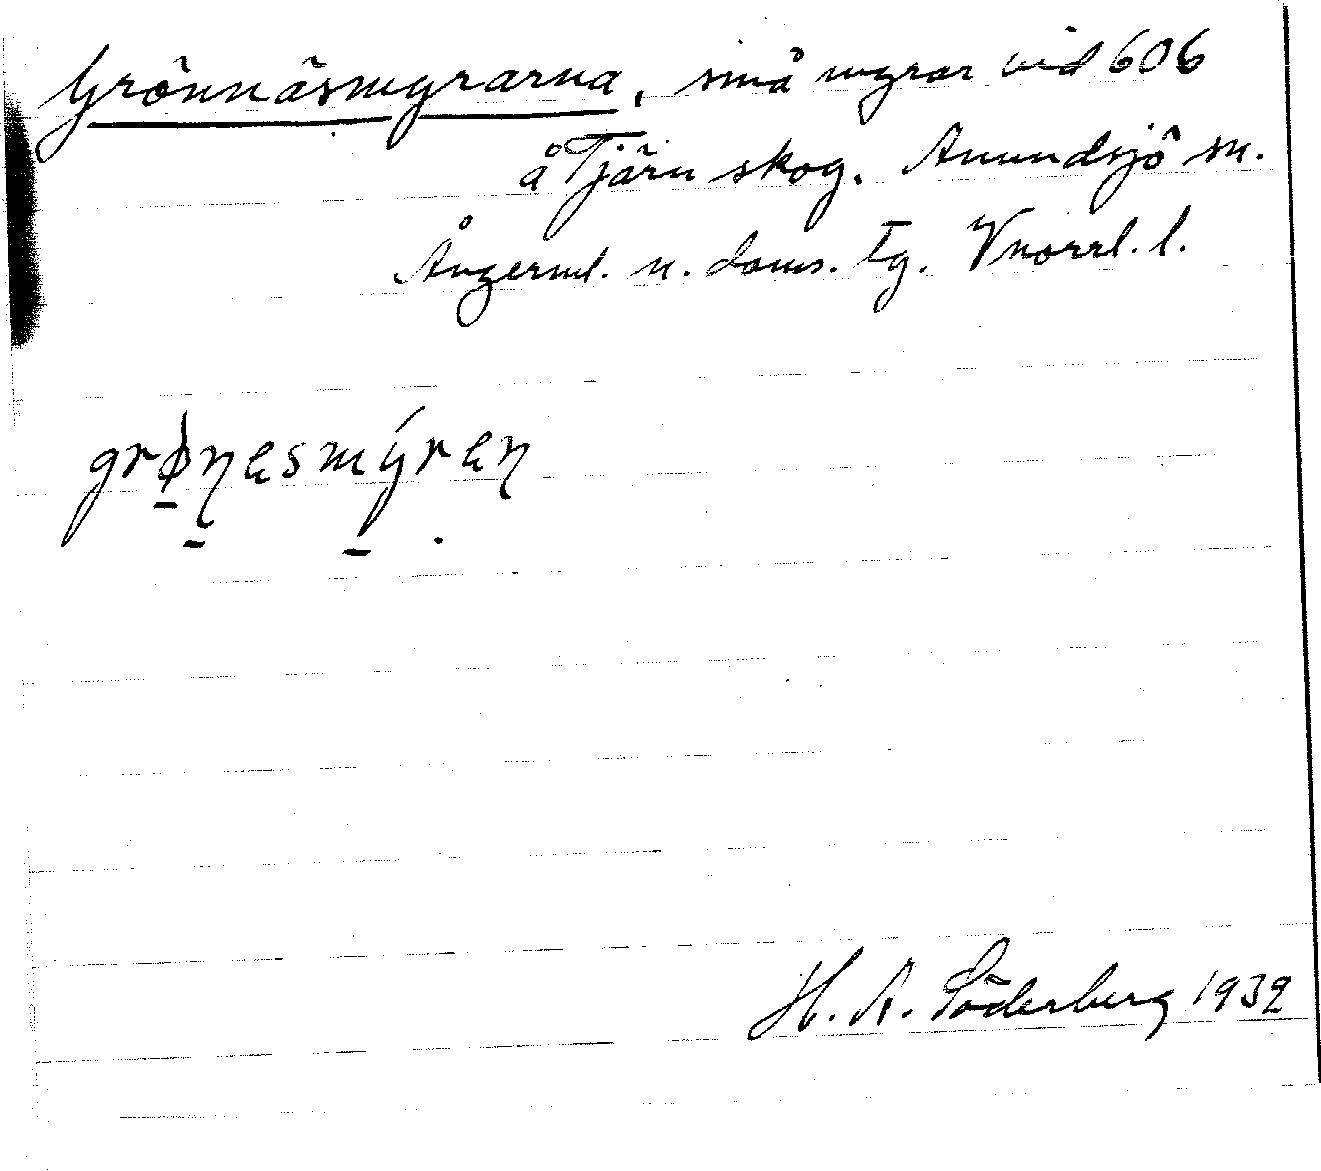 Grönnäsmyrarna, små myrar vid 606
å Tjärn skog. Anundsjö sn.
Ångerml. n. doms. tg. Vnorrl. l.
grønesmýren
H. A. Söderberg 1932